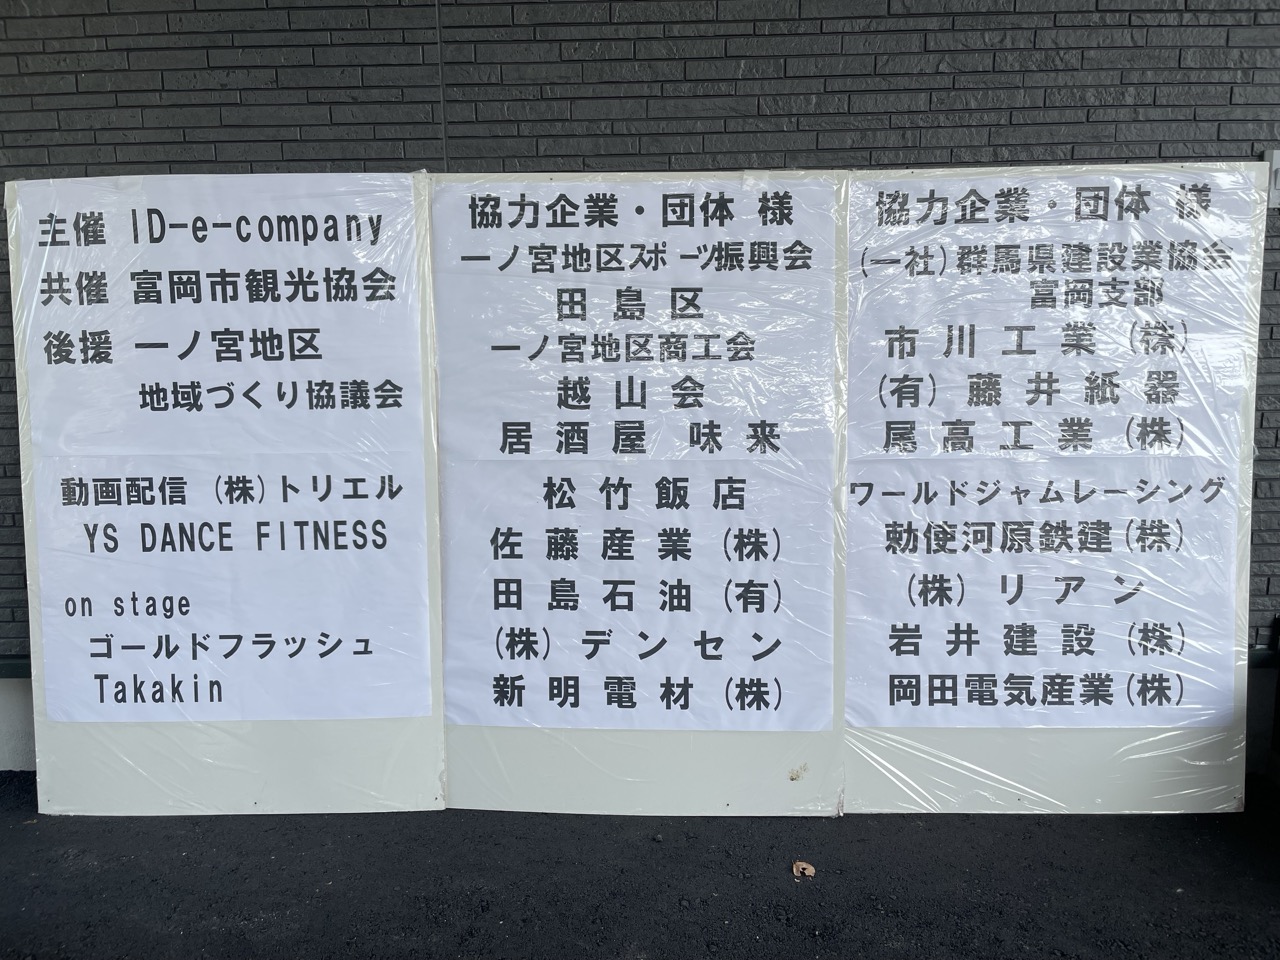 主催 ID-e-company
共催 富岡市観光協会
後援 一ノ宮地区
地域づくり協議会
動画配信 (株)トリエル
YS DANCE FITNESS
on stage
ゴールドフラッシュ
Takakin
協力企業・団体 様
一ノ宮地区スポーツ振興会
田島区
一ノ宮地区商工会
越山会
居酒屋 味来
松竹飯店
佐藤産業(株)
田島石油(有)
(株)デンセン
新明電材(株)
協力企業・団体 様
(一社)群馬県建設業協会
富岡支部
市川工業(株)
(有)藤井紙器
尾高工業(株)
ワールドジャムレーシング
勅使河原鉄建(株)
(株)リアン
岩井建設(株)
岡田電気産業(株)